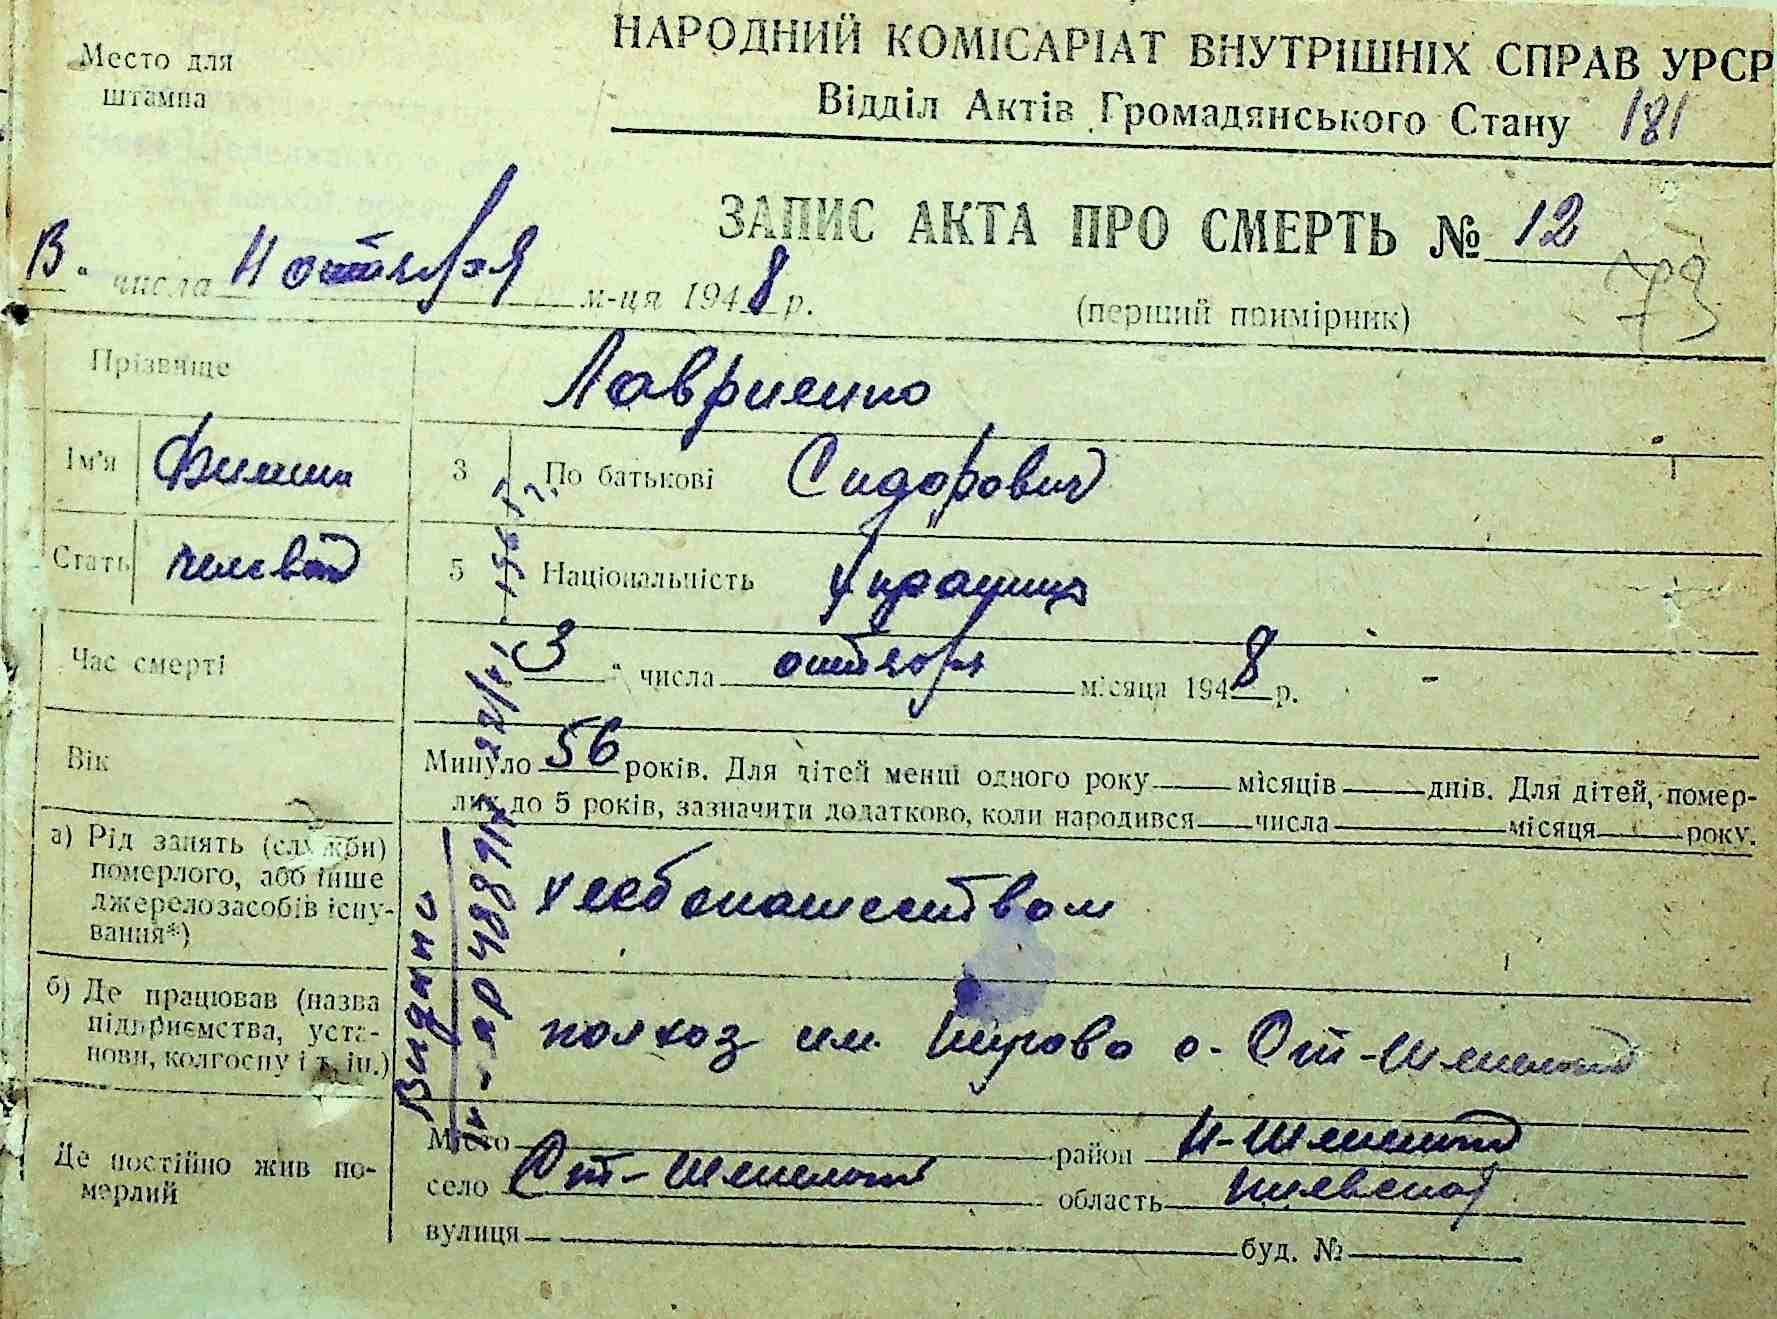 Место для
штампа
НАРОДНИЙ КОМІСАРІАТ ВНУТРІШНІХ СПРАВ УРСР
Відділ Актів Громадянського Стану 181
ЗАПИС АКТА ПРО СМЕРТЬ № 12
числа октября м-ця 1948 р.
(перший примірник)
Прізвище Лавриенко
Ім'я 3 По батькові Сидорович
Стать 5 Національність Украинец
Час смерті 3 " числа октября місяця 1948 р.
Вік Минуло 56 років. Для дітей менш одного року місяців днів. Для дітей, помер-
лих до 5 років, зазначити додатково, коли народився числа місяця року.
а) Рід занять (служби)
померлого, або інше
джерело засобів існу-
вання*)
хлебопашеством
б) Де працював (назва
підприємства, уста-
нови, колгоспу і т. ін.)
колхоз им. Кирова с. Ст-
Де постійно жив по-
мерлий
Місто район
село область Киевская
вулиця буд. №
Видано